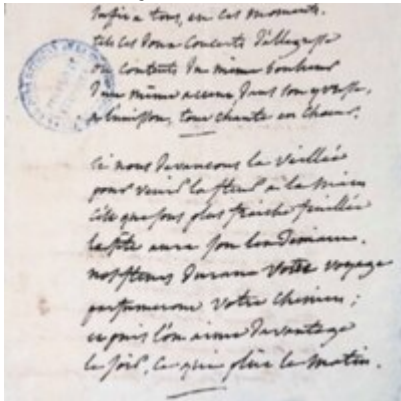 à tous, en ces moments.
ces doux concerts d'allegresse
contents du même bonheur
D'une même dans son yvresse,
à l'unisson, tout chante en chœur.
Si nous devançons la veillée
pour venir la fleur à la main
C'est que sous plus fraiche feuillée
la fête aura son lendemain.
nos fleurs durant votre voyage
parfumeront votre chemin;
et puis l'on aime davantage
le soir, ce qui plut le matin.